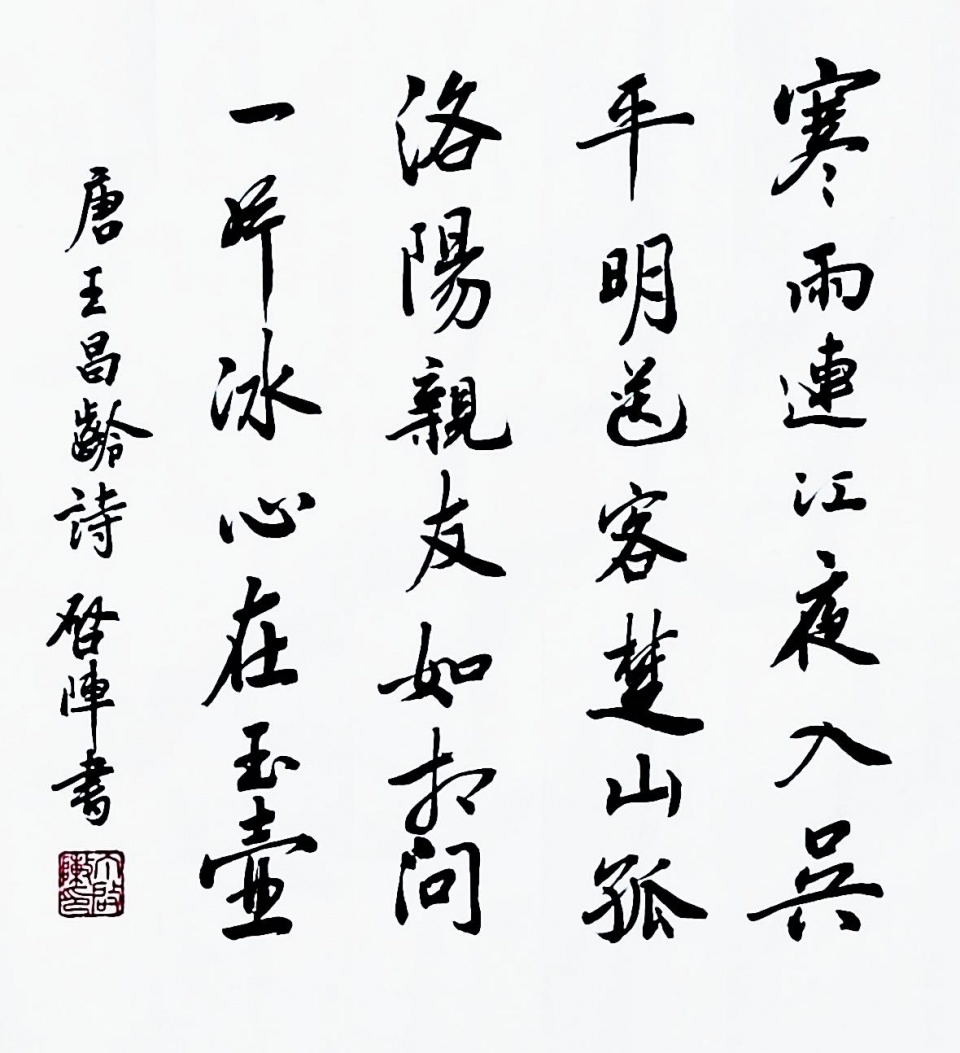 寒雨連江夜入吳
平明送客楚山孤
洛陽親友如相問
一片冰心在玉壺
唐王昌齡詩 啓陣書